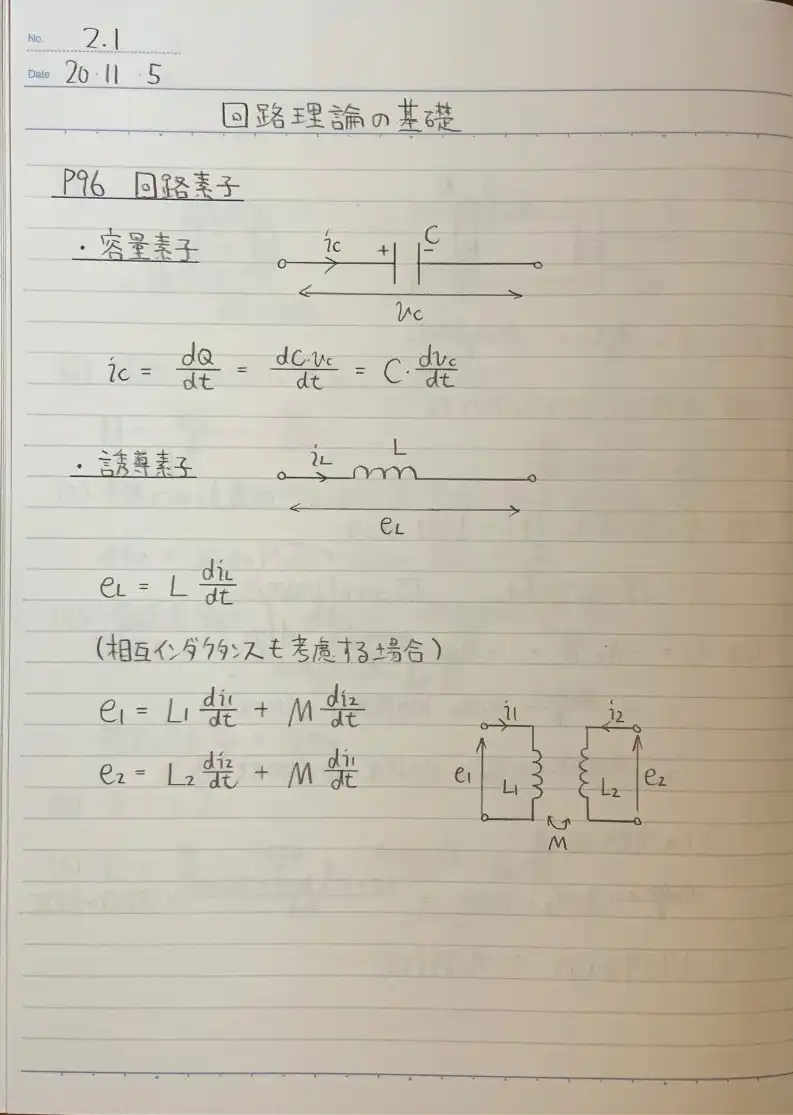 No. 2.1
Date 20・11・5
回路理論の基礎
P96 回路素子
・容量素子
ic + C -
vc
ic = dQ/dt = dC・vc/dt = C・dvc/dt
・誘導素子
iL L
eL
eL = L diL/dt
(相互インダクタンスも考慮する場合)
e1 = L1 di1/dt + M di2/dt
e2 = L2 di2/dt + M di1/dt
i1 i2
e1 L1 L2 e2
M